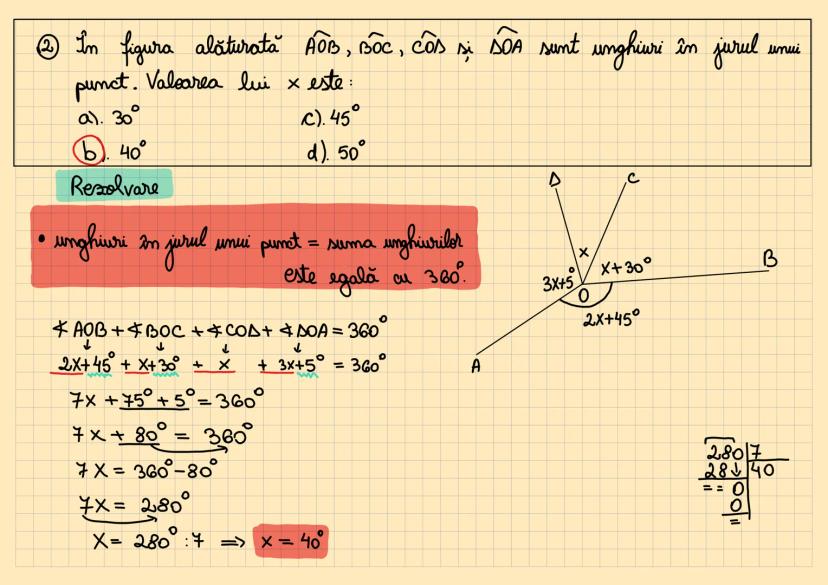 ② În figura alăturată AOB, BOC, COD și DOA sunt unghiuri în jurul unui
punct. Valoarea lui x este:
a). 30° c). 45°
b). 40° d). 50°
Rezolvare
• unghiuri în jurul unui punct = suma unghiurilor
este egală cu 360°.
D C
x x+30° B
3x+5° O
2x+45°
A
∢AOB + ∢BOC + ∢COD + ∢DOA = 360°
↓ ↓ ↓ ↓
2x+45° + x+30° + x + 3x+5° = 360°
7x + 75° + 5° = 360°
7x + 80° = 360°
7x = 360° - 80°
7x = 280°
x = 280° : 7 ⟹ x = 40°
280 | 7
28↓ | 40
== 0
0
=